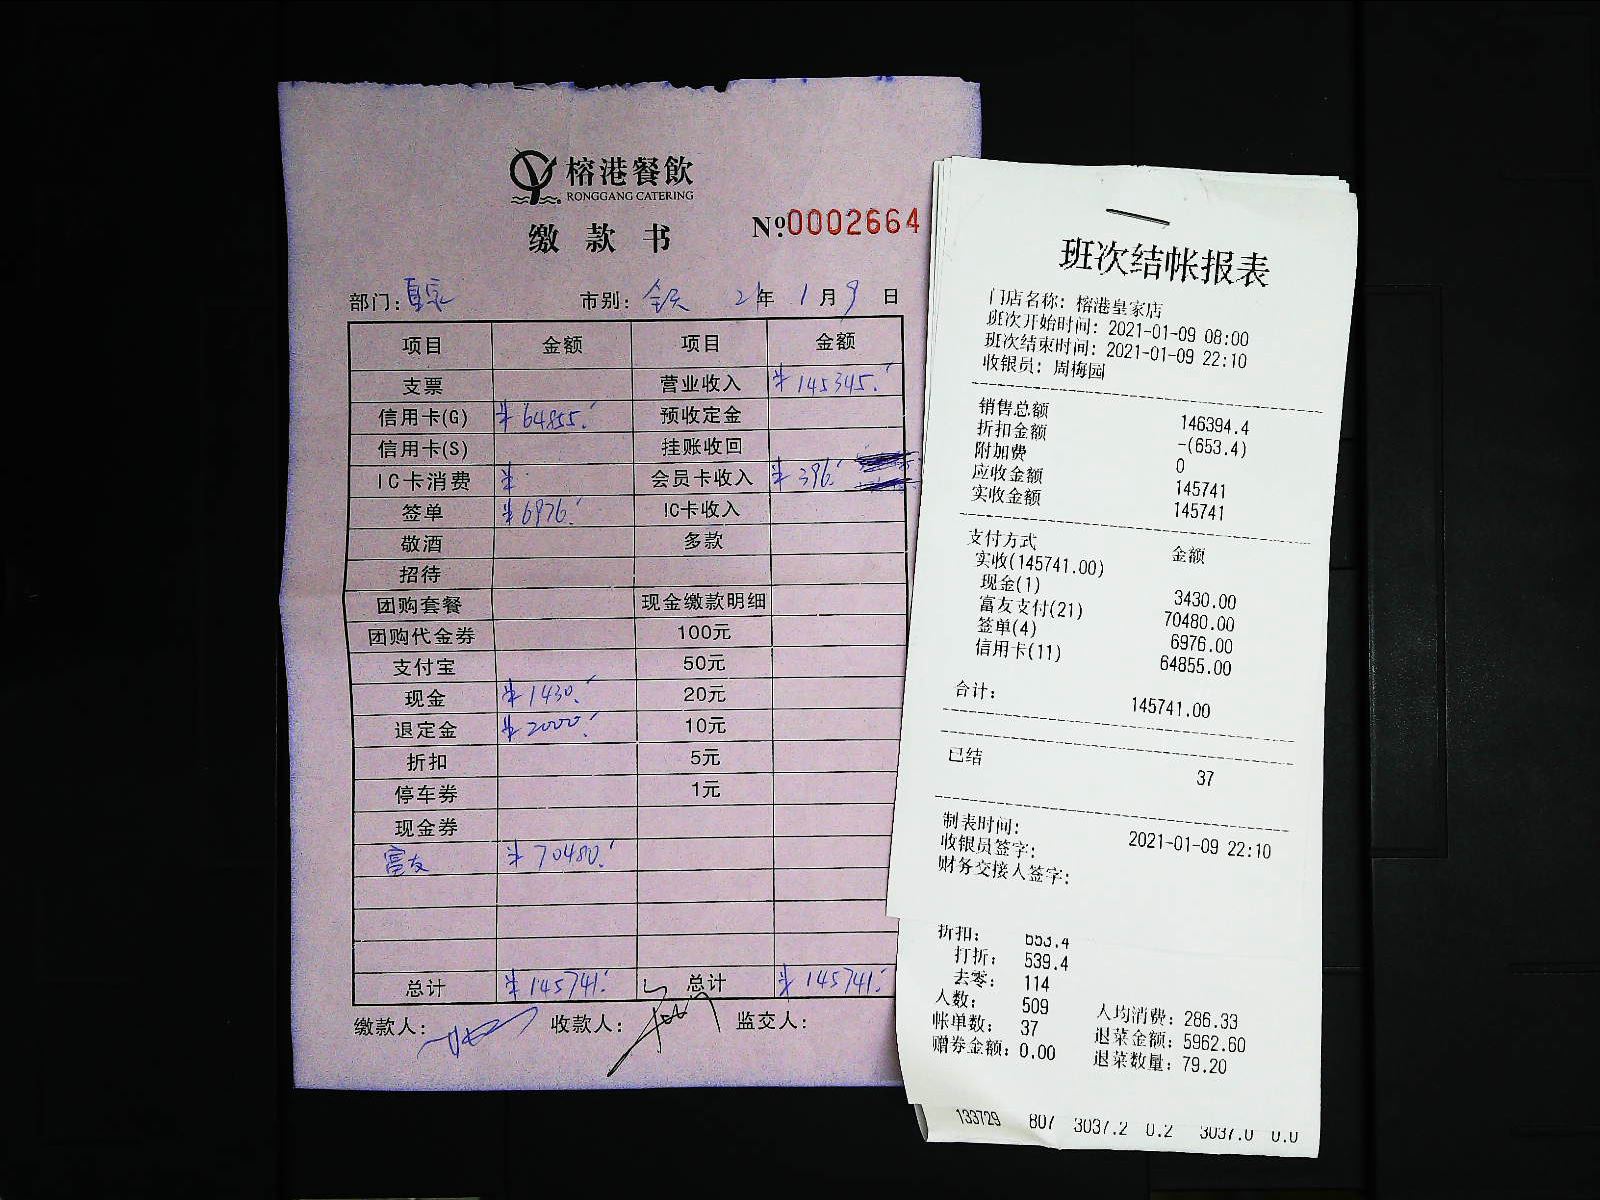 榕港餐飲
RONGGANG CATERING
缴款书
№0002664
部门：皇家 市别：全天 21年 1月 9日
项目 金额 项目 金额
支票 营业收入 ¥145345.
信用卡(G) ¥64855. 预收定金
信用卡(S) 挂账收回
IC卡消费 ¥ 会员卡收入 ¥396.
签单 ¥6976. IC卡收入
敬酒 多款
招待
团购套餐 现金缴款明细
团购代金券 100元
支付宝 50元
现金 ¥1430. 20元
退定金 ¥2000. 10元
折扣 5元
停车券 1元
现金券
富友 ¥70480.
总计 ¥145741. 总计 ¥145741.
缴款人： 收款人： 监交人：
班次结帐报表
门店名称：榕港皇家店
班次开始时间：2021-01-09 08:00
班次结束时间：2021-01-09 22:10
收银员：周梅园
销售总额 146394.4
折扣金额 -(653.4)
附加费 0
应收金额 145741
实收金额 145741
支付方式 金额
实收(145741.00)
现金(1) 3430.00
富友支付(21) 70480.00
签单(4) 6976.00
信用卡(11) 64855.00
合计： 145741.00
已结 37
制表时间： 2021-01-09 22:10
收银员签字：
财务交接人签字：
折扣： 653.4
打折： 539.4
去零： 114
人数： 509 人均消费：286.33
帐单数： 37 退菜金额：5962.60
赠券金额：0.00 退菜数量：79.20
133729 807 3037.2 0.2 3037.0 0.0